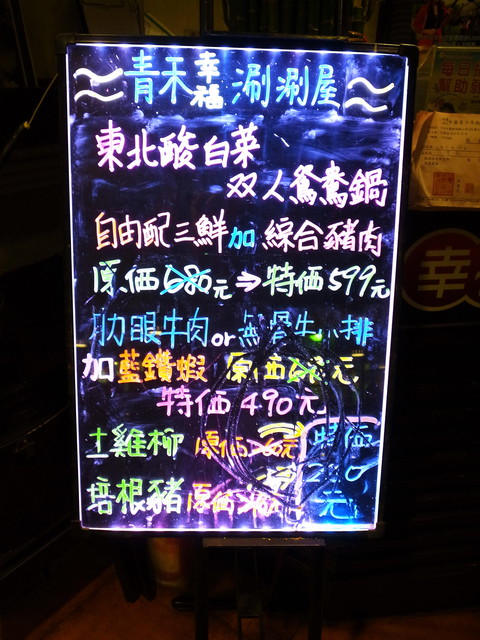 青禾幸福涮涮屋
東北酸白菜
双人鴛鴦鍋
自由配三鮮加綜合豬肉
原価680元⇒特価599元
肋眼牛肉or無骨牛小排
加藍鑽蝦 原価元
特価490元
土雞柳 原価260元 特価
培根豬 原価
元
幸